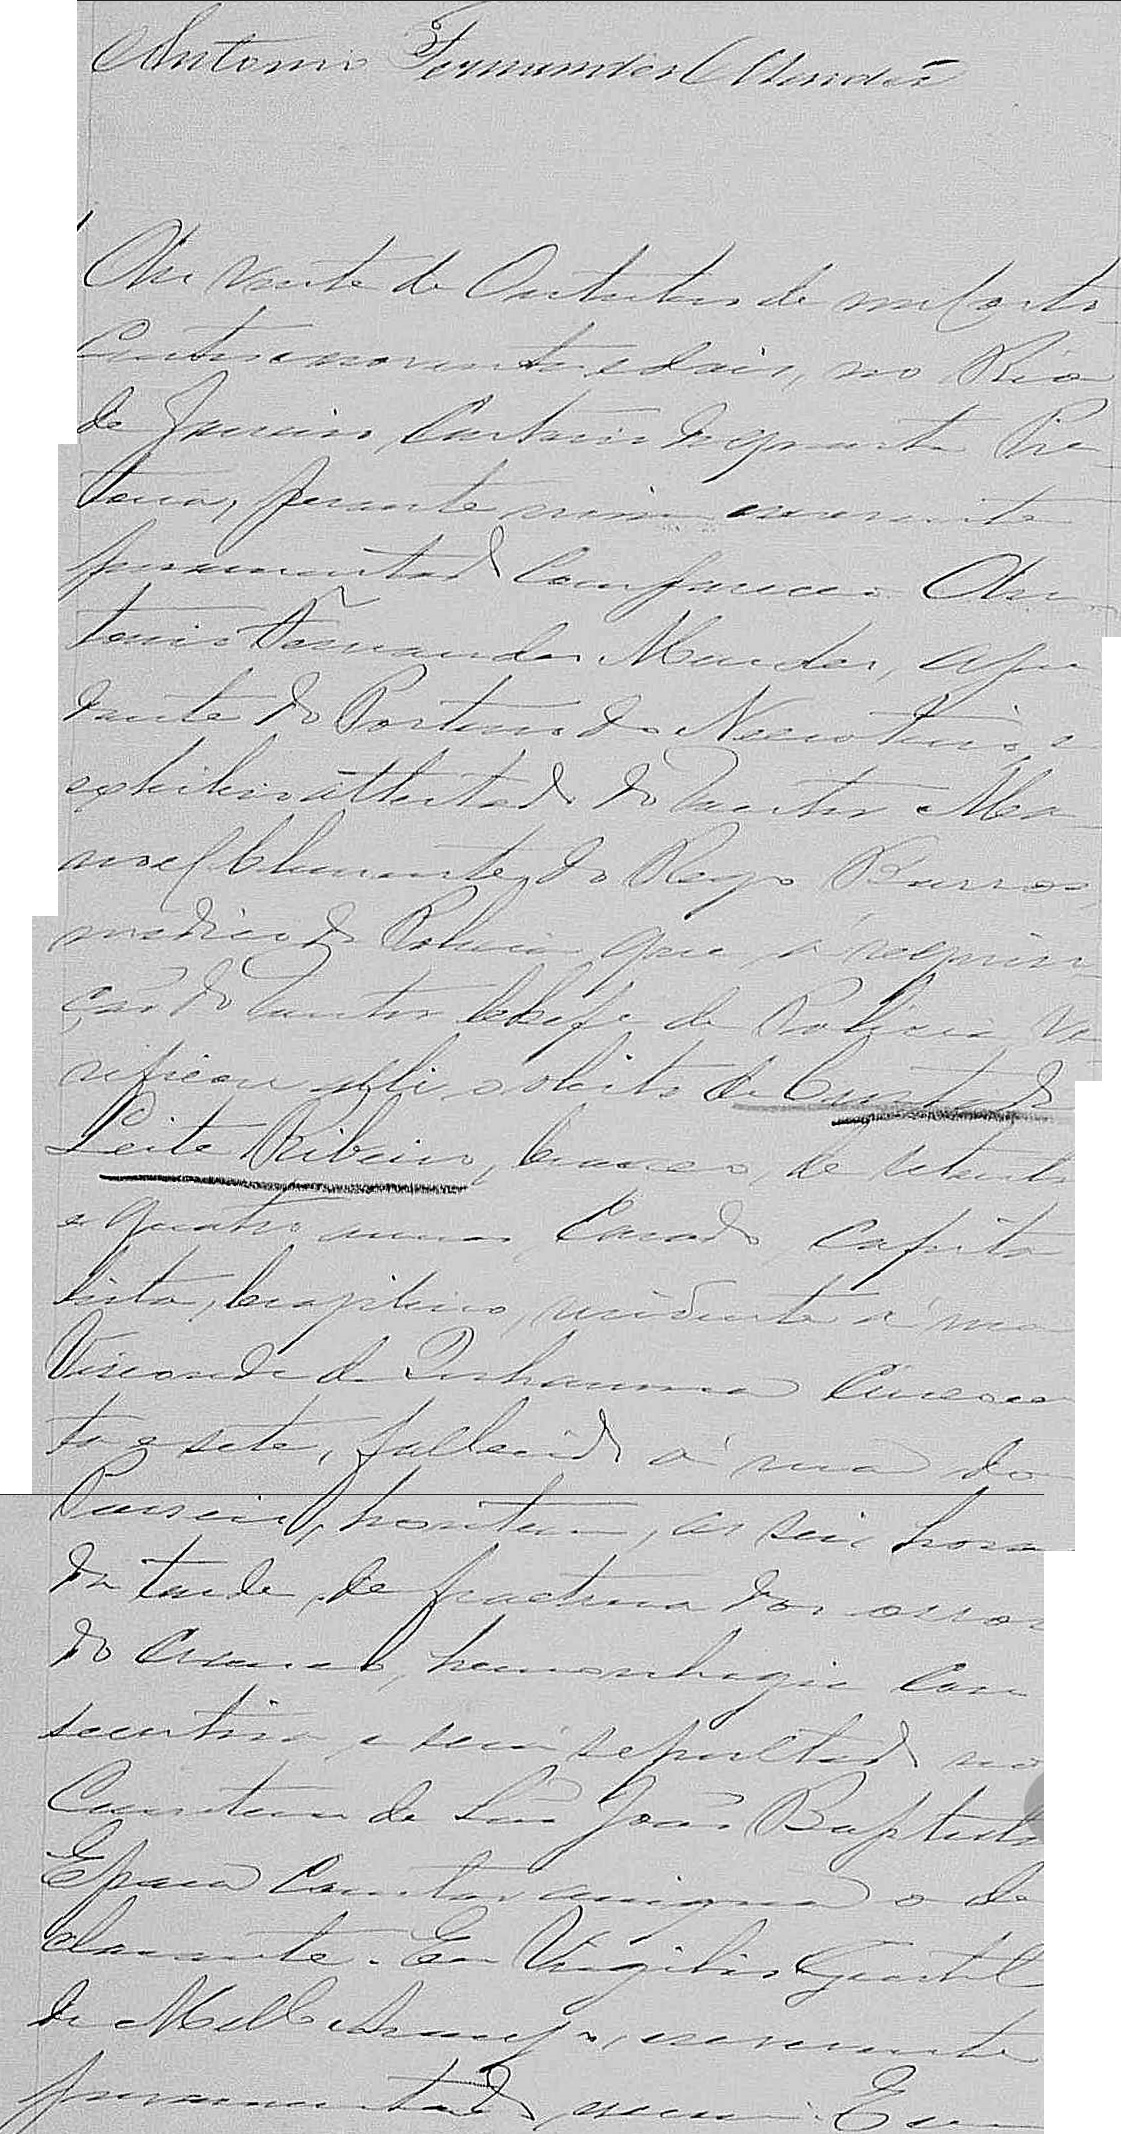 Antonio Fernandes Mendes
Aos vinte de Outubro de mil oito
centos e noventa e dois, no Rio
de Janeiro, Cartorio da quarta Pre
toria, perante mim escrevente
juramentado compareceu An
tonio Fernandes Mendes, aju
dante do Porteiro do Necroterio, e
exhibio attestado do Doutor Ma
noel Clemente do Rego Barros,
medico da Policia que á requisi
ção do Doutor Chefe de Policia ve
rificou alli o obito de Custodio
Leite Ribeiro, branco, de setenta
e quatro annos, casado, capita
lista, brazileiro, residente á rua
Visconde de Inhauma cincoen
ta e sete, fallecido á rua do
Passeio, hontem, as seis horas
da tarde, de fractura dos ossos
do craneo, hemorrhagia con
secutiva e será sepultado no
Cemiterio de São João Baptista
E para constar assigna o de
clarante. Eu Virgilio Gentil
de Mello Araujo, escrevente
juramentado, escrevi. E eu